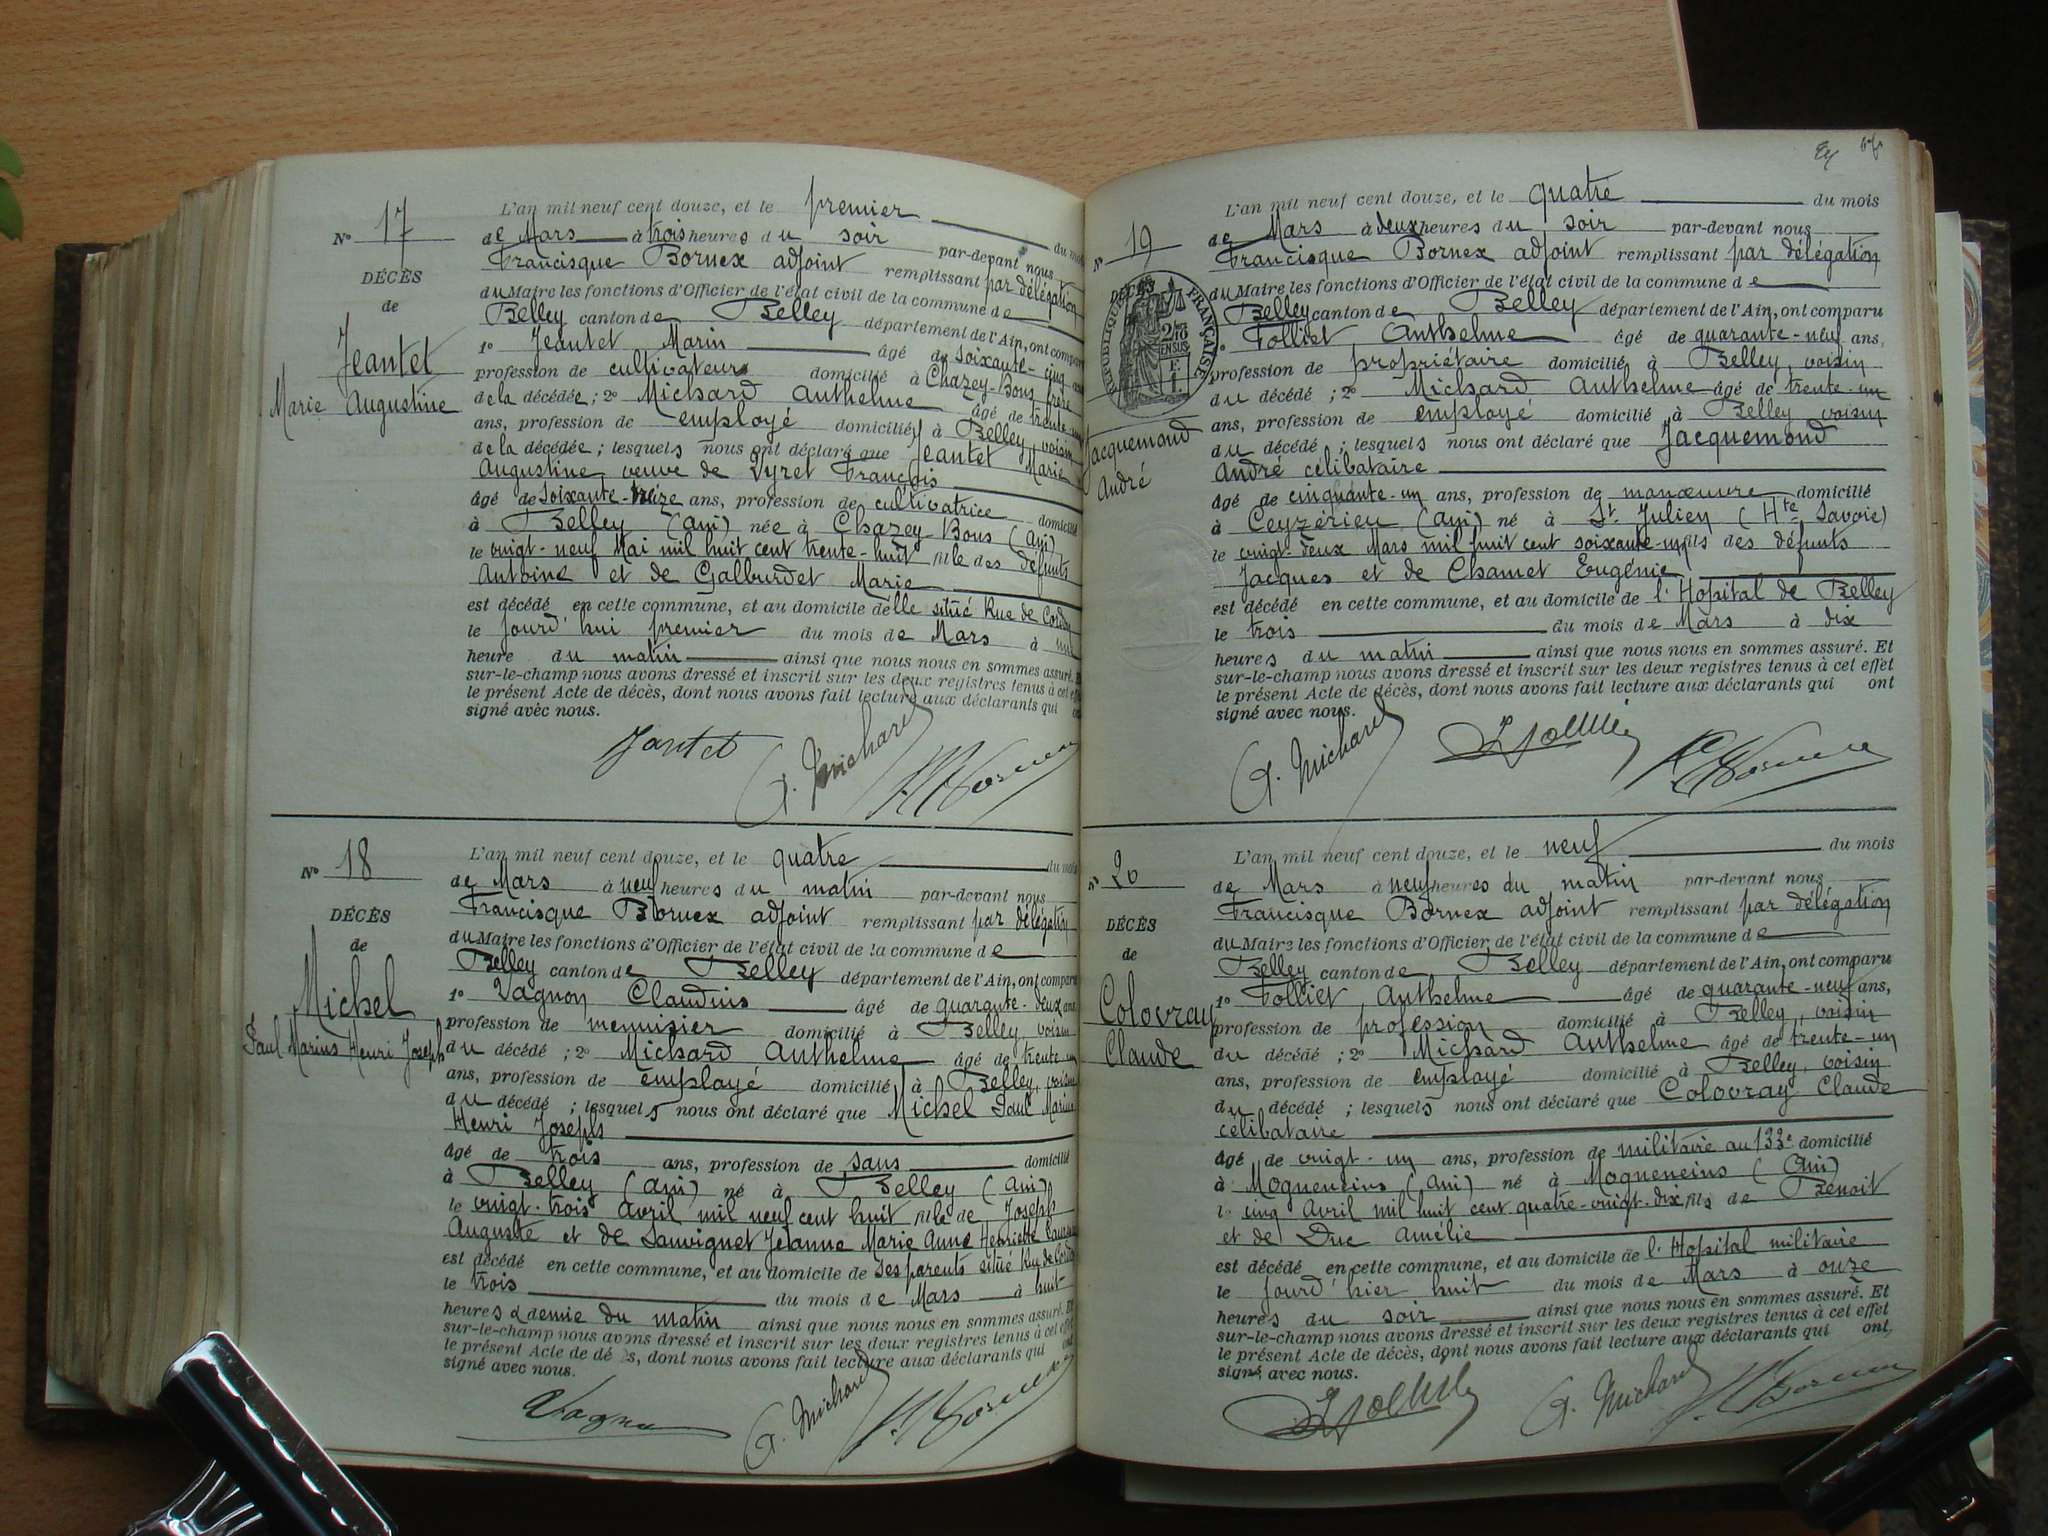 N° 17
DÉCÈS
de
Jeantet
Marie Augustine
L'an mil neuf cent douze, et le premier du mois
de Mars à trois heures du soir par-devant nous
Francisque Bornex adjoint remplissant par délégation
du Maire les fonctions d'Officier de l'état civil de la commune de
Belley canton de Belley département de l'Ain, ont comparu
1° Jeantet Marin âgé de soixante-cinq ans
profession de cultivateur domicilié à Chazey-Bons frère
de la décédée ; 2° Michard Anthelme âgé de trente-un
ans, profession de employé domicilié à Belley voisin
de la décédée ; lesquels nous ont déclaré que Jeantet Marie
Augustine veuve de Vyret François
âgé de soixante-treize ans, profession de cultivatrice domicilié
à Belley (Ain) née à Chazey-Bons (Ain)
le vingt-neuf Mai mil huit cent trente-huit fille des défunts
Antoine et de Galburdet Marie
est décédé en cette commune, et au domicile d'elle situé Rue de
le jourd'hui premier du mois de Mars à une
heure du matin ainsi que nous nous en sommes assuré. Et
sur-le-champ nous avons dressé et inscrit sur les deux registres tenus à cet effet
le présent Acte de décès, dont nous avons fait lecture aux déclarants qui ont
signé avec nous.
Jantet A. Michard F. Bornex
N° 18
DÉCÈS
de
Michel
Paul Marius Henri Joseph
L'an mil neuf cent douze, et le quatre du mois
de Mars à neuf heures du matin par-devant nous
Francisque Bornex adjoint remplissant par délégation
du Maire les fonctions d'Officier de l'état civil de la commune de
Belley canton de Belley département de l'Ain, ont comparu
1° Vagnon Claudius âgé de quarante-deux ans
profession de menuisier domicilié à Belley, voisin
du décédé ; 2° Michard Anthelme âgé de trente-un
ans, profession de employé domicilié à Belley, voisin
du décédé ; lesquels nous ont déclaré que Michel Paul Marius
Henri Joseph
âgé de trois ans, profession de sans domicilié
à Belley (Ain) né à Belley (Ain)
le vingt-trois Avril mil neuf cent huit fils de Joseph
Auguste et de Sauvignet Jeanne Marie Anne Henriette
est décédé en cette commune, et au domicile de ses parents situé Rue de
le trois du mois de Mars à huit
heures & demie du matin ainsi que nous nous en sommes assuré. Et
sur-le-champ nous avons dressé et inscrit sur les deux registres tenus à cet effet
le présent Acte de décès, dont nous avons fait lecture aux déclarants qui ont
signé avec nous.
A. Michard F. Bornex
N° 19
DÉCÈS
RÉPUBLIQUE FRANÇAISE
Jacquemond
André
L'an mil neuf cent douze, et le quatre du mois
de Mars à deux heures du soir par-devant nous
Francisque Bornex adjoint remplissant par délégation
du Maire les fonctions d'Officier de l'état civil de la commune de
Belley canton de Belley département de l'Ain, ont comparu
1° Folliet Anthelme âgé de quarante-neuf ans,
profession de propriétaire domicilié à Belley, voisin
du décédé ; 2° Michard Anthelme âgé de trente-un
ans, profession de employé domicilié à Belley voisin
du décédé ; lesquels nous ont déclaré que Jacquemond
André célibataire
âgé de cinquante-un ans, profession de manœuvre domicilié
à Ceyzérieu (Ain) né à St. Julien (Hte Savoie)
le vingt-deux Mars mil huit cent soixante-un fils des défunts
Jacques et de Chamet Eugénie
est décédé en cette commune, et au domicile de l'Hopital de Belley
le trois du mois de Mars à dix
heures du matin ainsi que nous nous en sommes assuré. Et
sur-le-champ nous avons dressé et inscrit sur les deux registres tenus à cet effet
le présent Acte de décès, dont nous avons fait lecture aux déclarants qui ont
signé avec nous.
A. Michard F. Bornex
N° 20
DÉCÈS
de
Colovray
Claude
L'an mil neuf cent douze, et le neuf du mois
de Mars à neuf heures du matin par-devant nous
Francisque Bornex adjoint remplissant par délégation
du Maire les fonctions d'Officier de l'état civil de la commune de
Belley canton de Belley département de l'Ain, ont comparu
1° Folliet Anthelme âgé de quarante-neuf ans,
profession de profession domicilié à Belley, voisin
du décédé ; 2° Michard Anthelme âgé de trente-un
ans, profession de employé domicilié à Belley, voisin
du décédé ; lesquels nous ont déclaré que Colovray Claude
célibataire
âgé de vingt-un ans, profession de militaire au 133e domicilié
à Mogneneins (Ain) né à Mogneneins (Ain)
le cinq Avril mil huit cent quatre-vingt-dix fils de Benoit
et de Duc Amélie
est décédé en cette commune, et au domicile de l'Hopital militaire
le jourd'hier huit du mois de Mars à onze
heures du soir ainsi que nous nous en sommes assuré. Et
sur-le-champ nous avons dressé et inscrit sur les deux registres tenus à cet effet
le présent Acte de décès, dont nous avons fait lecture aux déclarants qui ont
signé avec nous.
A. Michard F. Bornex